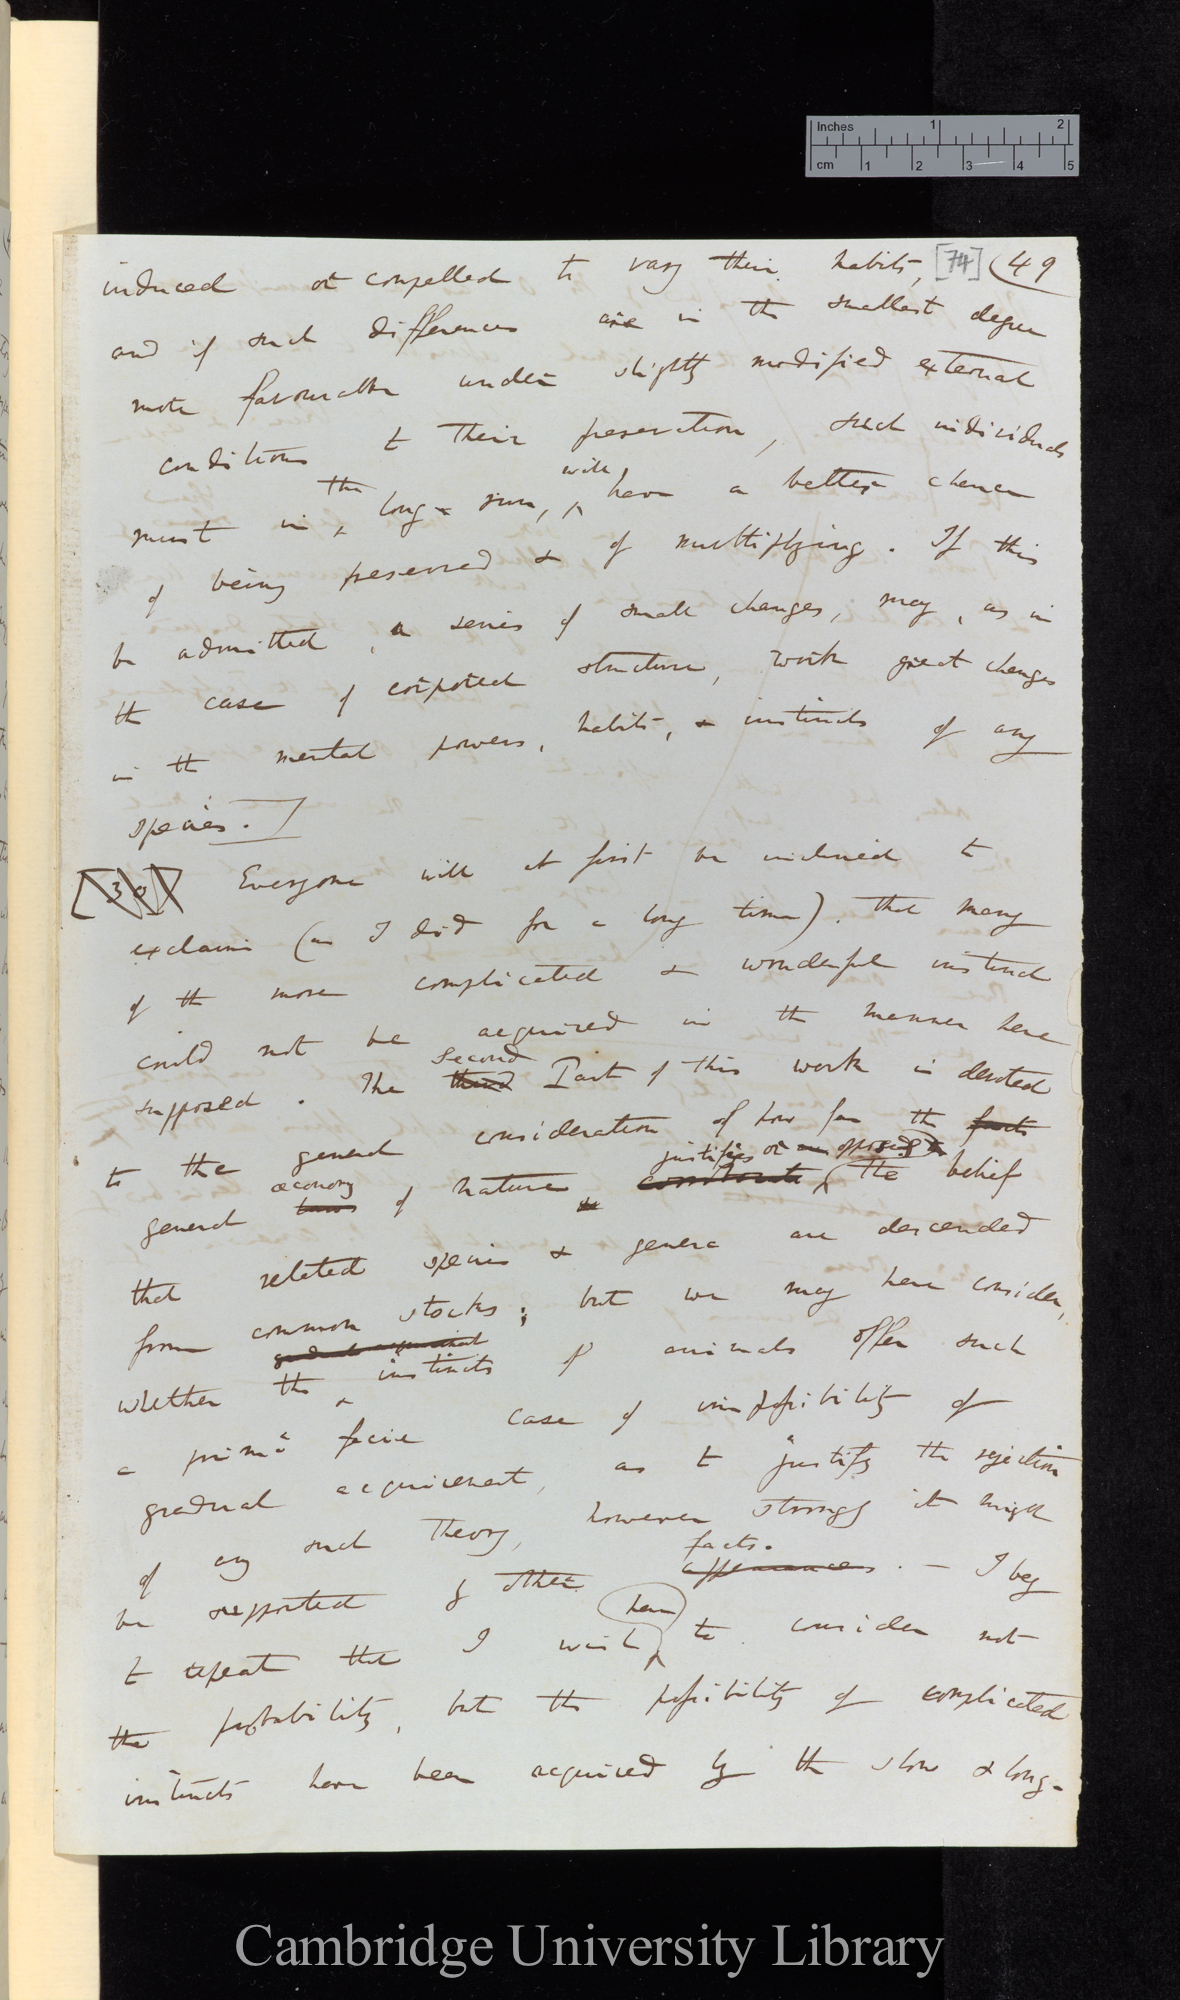 Inches 1 2
cm 1 2 3 4 5
induced or compelled to vary their habits, [74] (49
and if such differences are in the smallest degree
more favourable under slightly modified external
conditions to their preservation, such individuals
must in the long-run, will, have a better chance
of being preserved & of multiplying. If this
be admitted, a series of small changes, may, as in
the case of corporeal structure, work great changes
in the mental powers, habits, & instincts of any
species.]
[38] Everyone will at first be inclined to
exclaim (as I did for a long time), that many
of the more complicated & wonderful instincts
could not be acquired in the manner here
supposed. The third Second Part of this work is devoted
to the general consideration of how far the facts
general laws œconomy of nature justifies or opposed the belief
that related species & genera are descended
from common stocks; but we may here consider,
whether the gradual acquirement instincts of animals offer such
a primâ facie case of impossibility of
gradual acquirement, as to justify the rejection
of any such theory, however strongly it might
be supported by other appearances facts. — I beg
to repeat that I wish here to consider not
the probability, but the possibility of complicated
instincts have been acquired by the slow & long-
Cambridge University Library